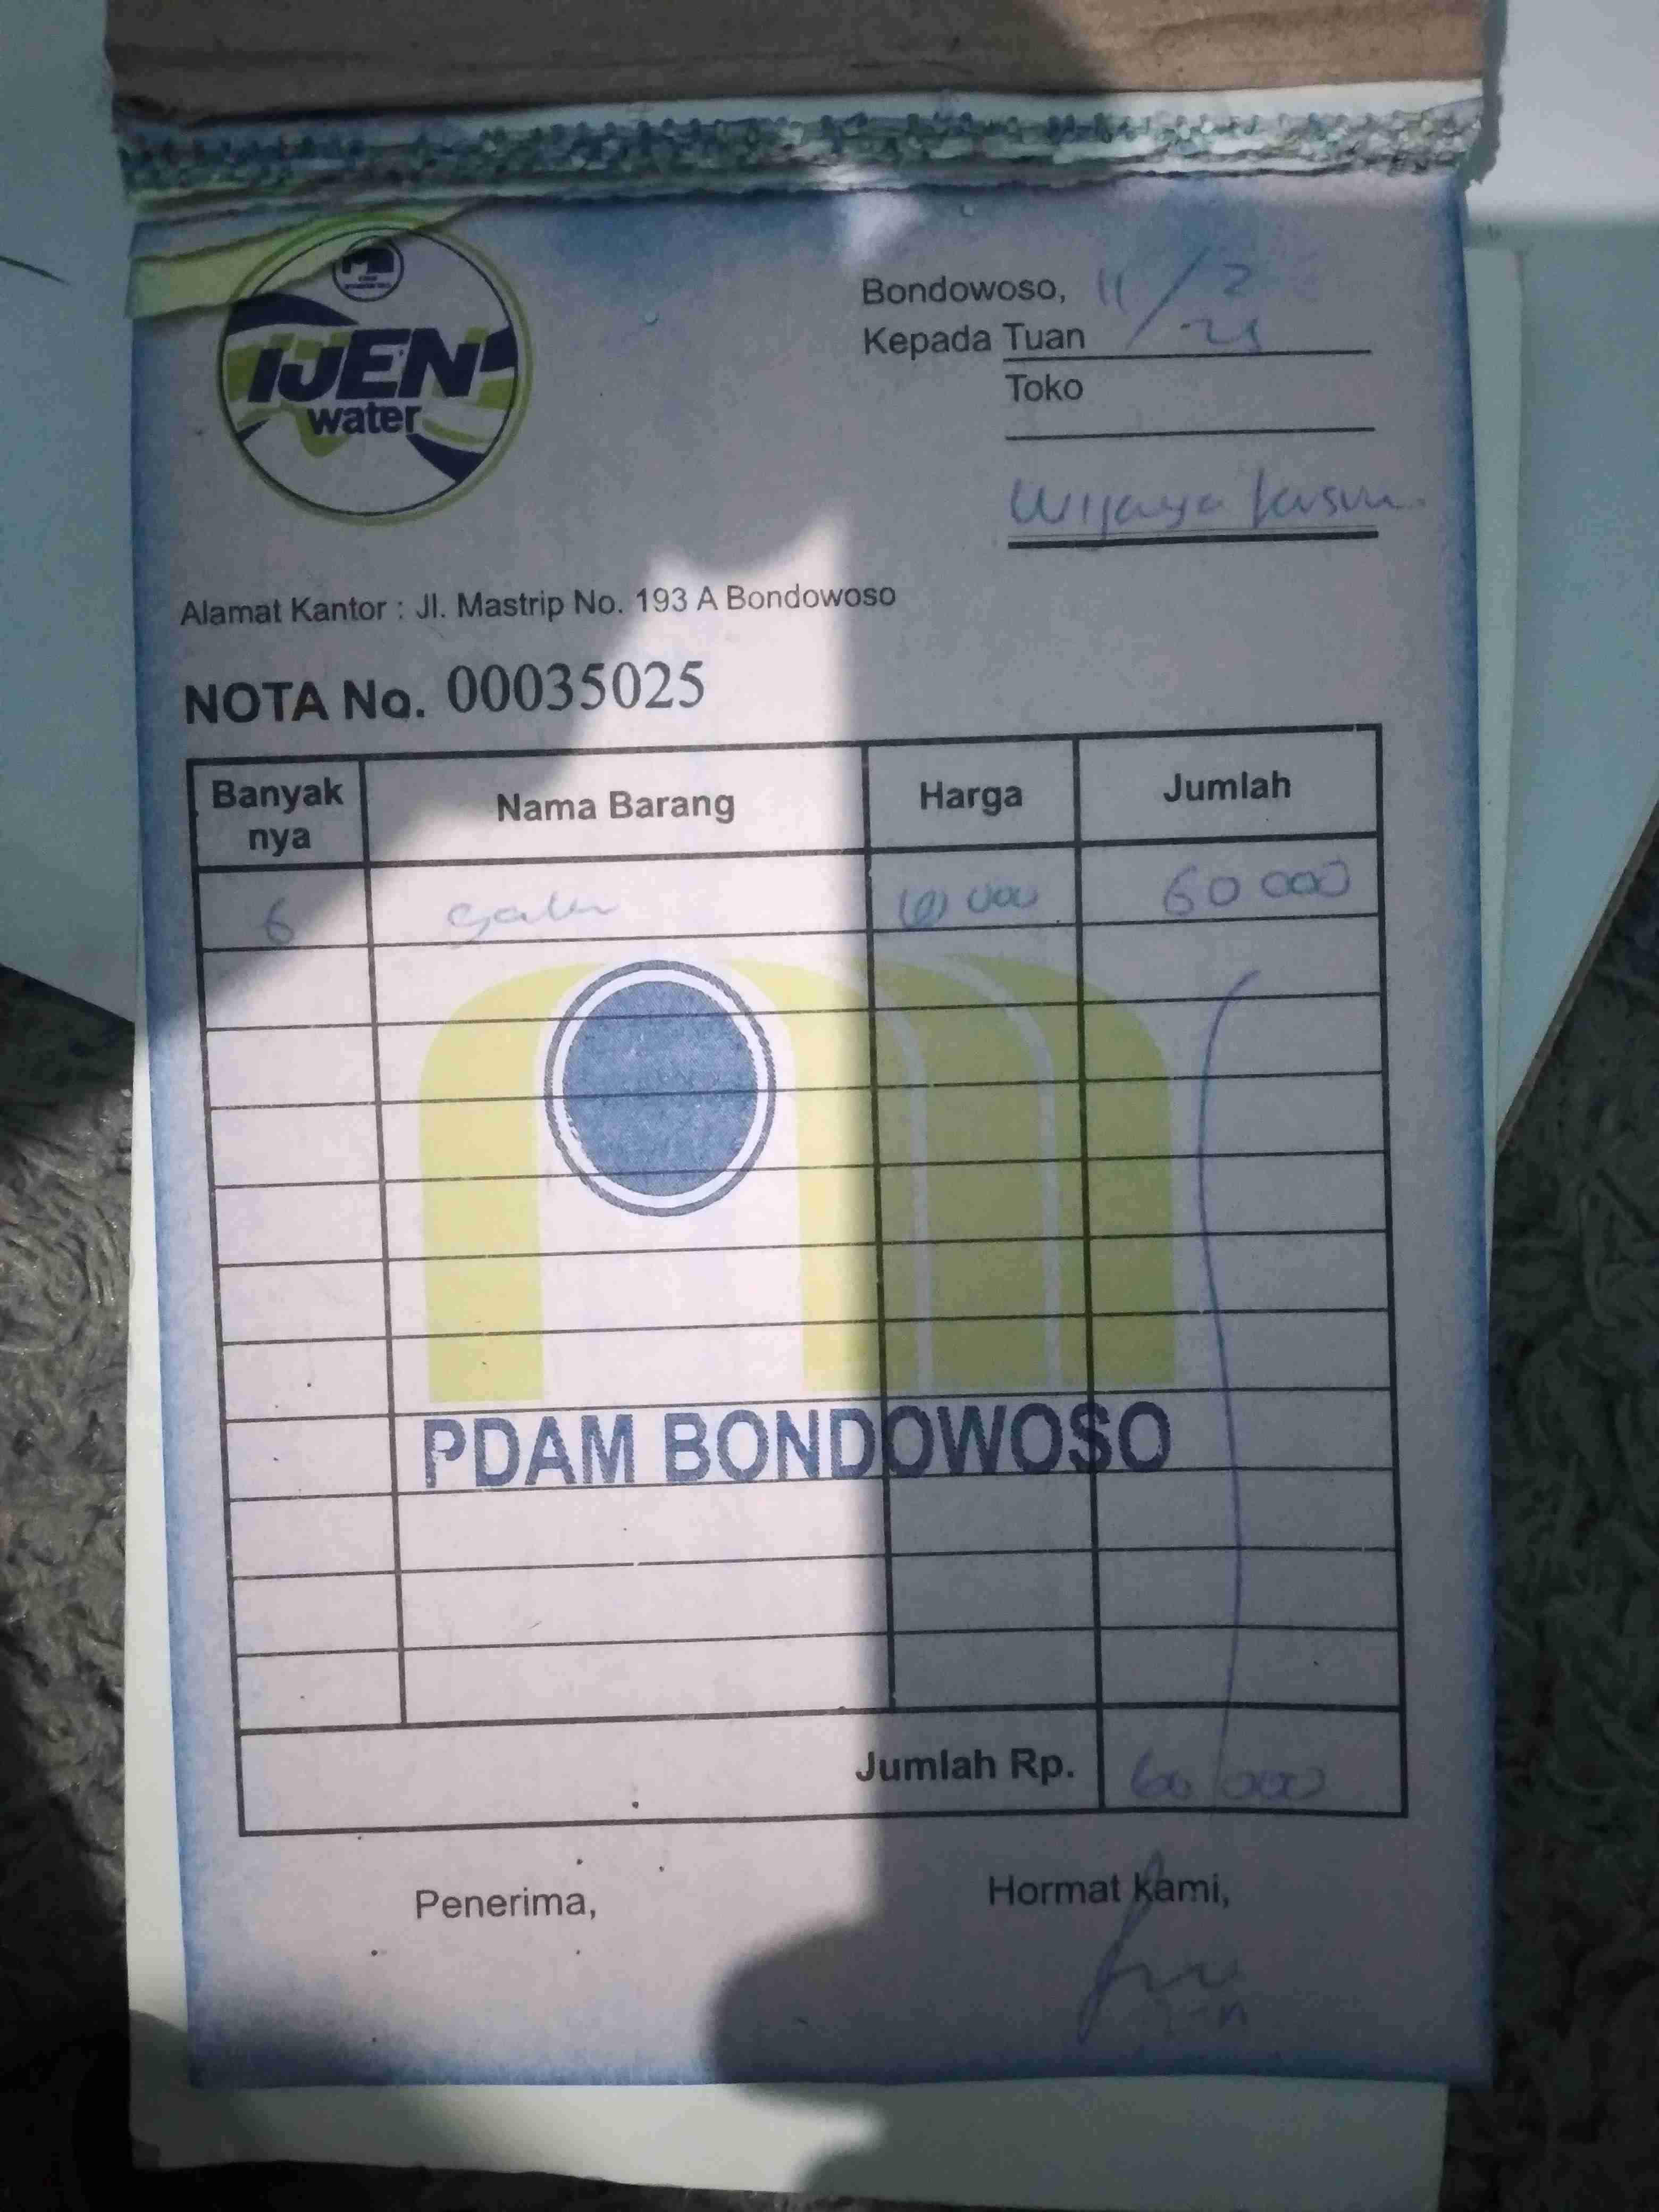 IJEN
water
Bondowoso, 11/2
Kepada Tuan
Toko
Wijaya Kusuma
Alamat Kantor : Jl. Mastrip No. 193 A Bondowoso
NOTA No. 00035025
Banyak nya Nama Barang Harga Jumlah
6 galon 10 000 60 000
PDAM BONDOWOSO
Jumlah Rp. 60 000
Penerima, Hormat Kami,